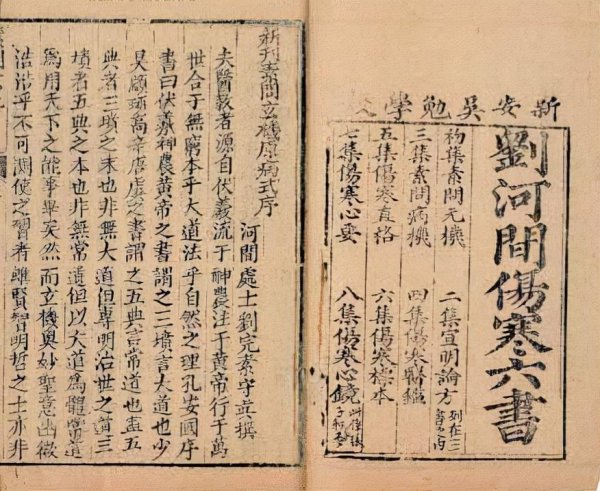 新安吳勉學
劉河間傷寒六書
初集素問元機
二集宣明論方 列在三書之內
三集素問病機
四集傷寒醫鑑
五集傷寒直格
六集傷寒標本
七集傷寒心要
八集傷寒心鏡
新刊素問玄機原病式序
河間處士劉完素守真撰
夫醫教者源自伏羲流于神農注于黃帝行于萬
世合于無窮本乎大道法乎自然之理孔安國序
書曰伏羲神農黃帝之書謂之三墳言大道也少
昊顓頊高辛唐虞之書謂之五典言常道也盖五
典者三墳之末也非無大道但專明治世之道三
墳者五典之本也非無常道但以大道為體常道
為用天下之能事畢矣然而玄機奧妙聖意幽微
浩浩乎不可測使之習者雖賢智明哲之士亦非